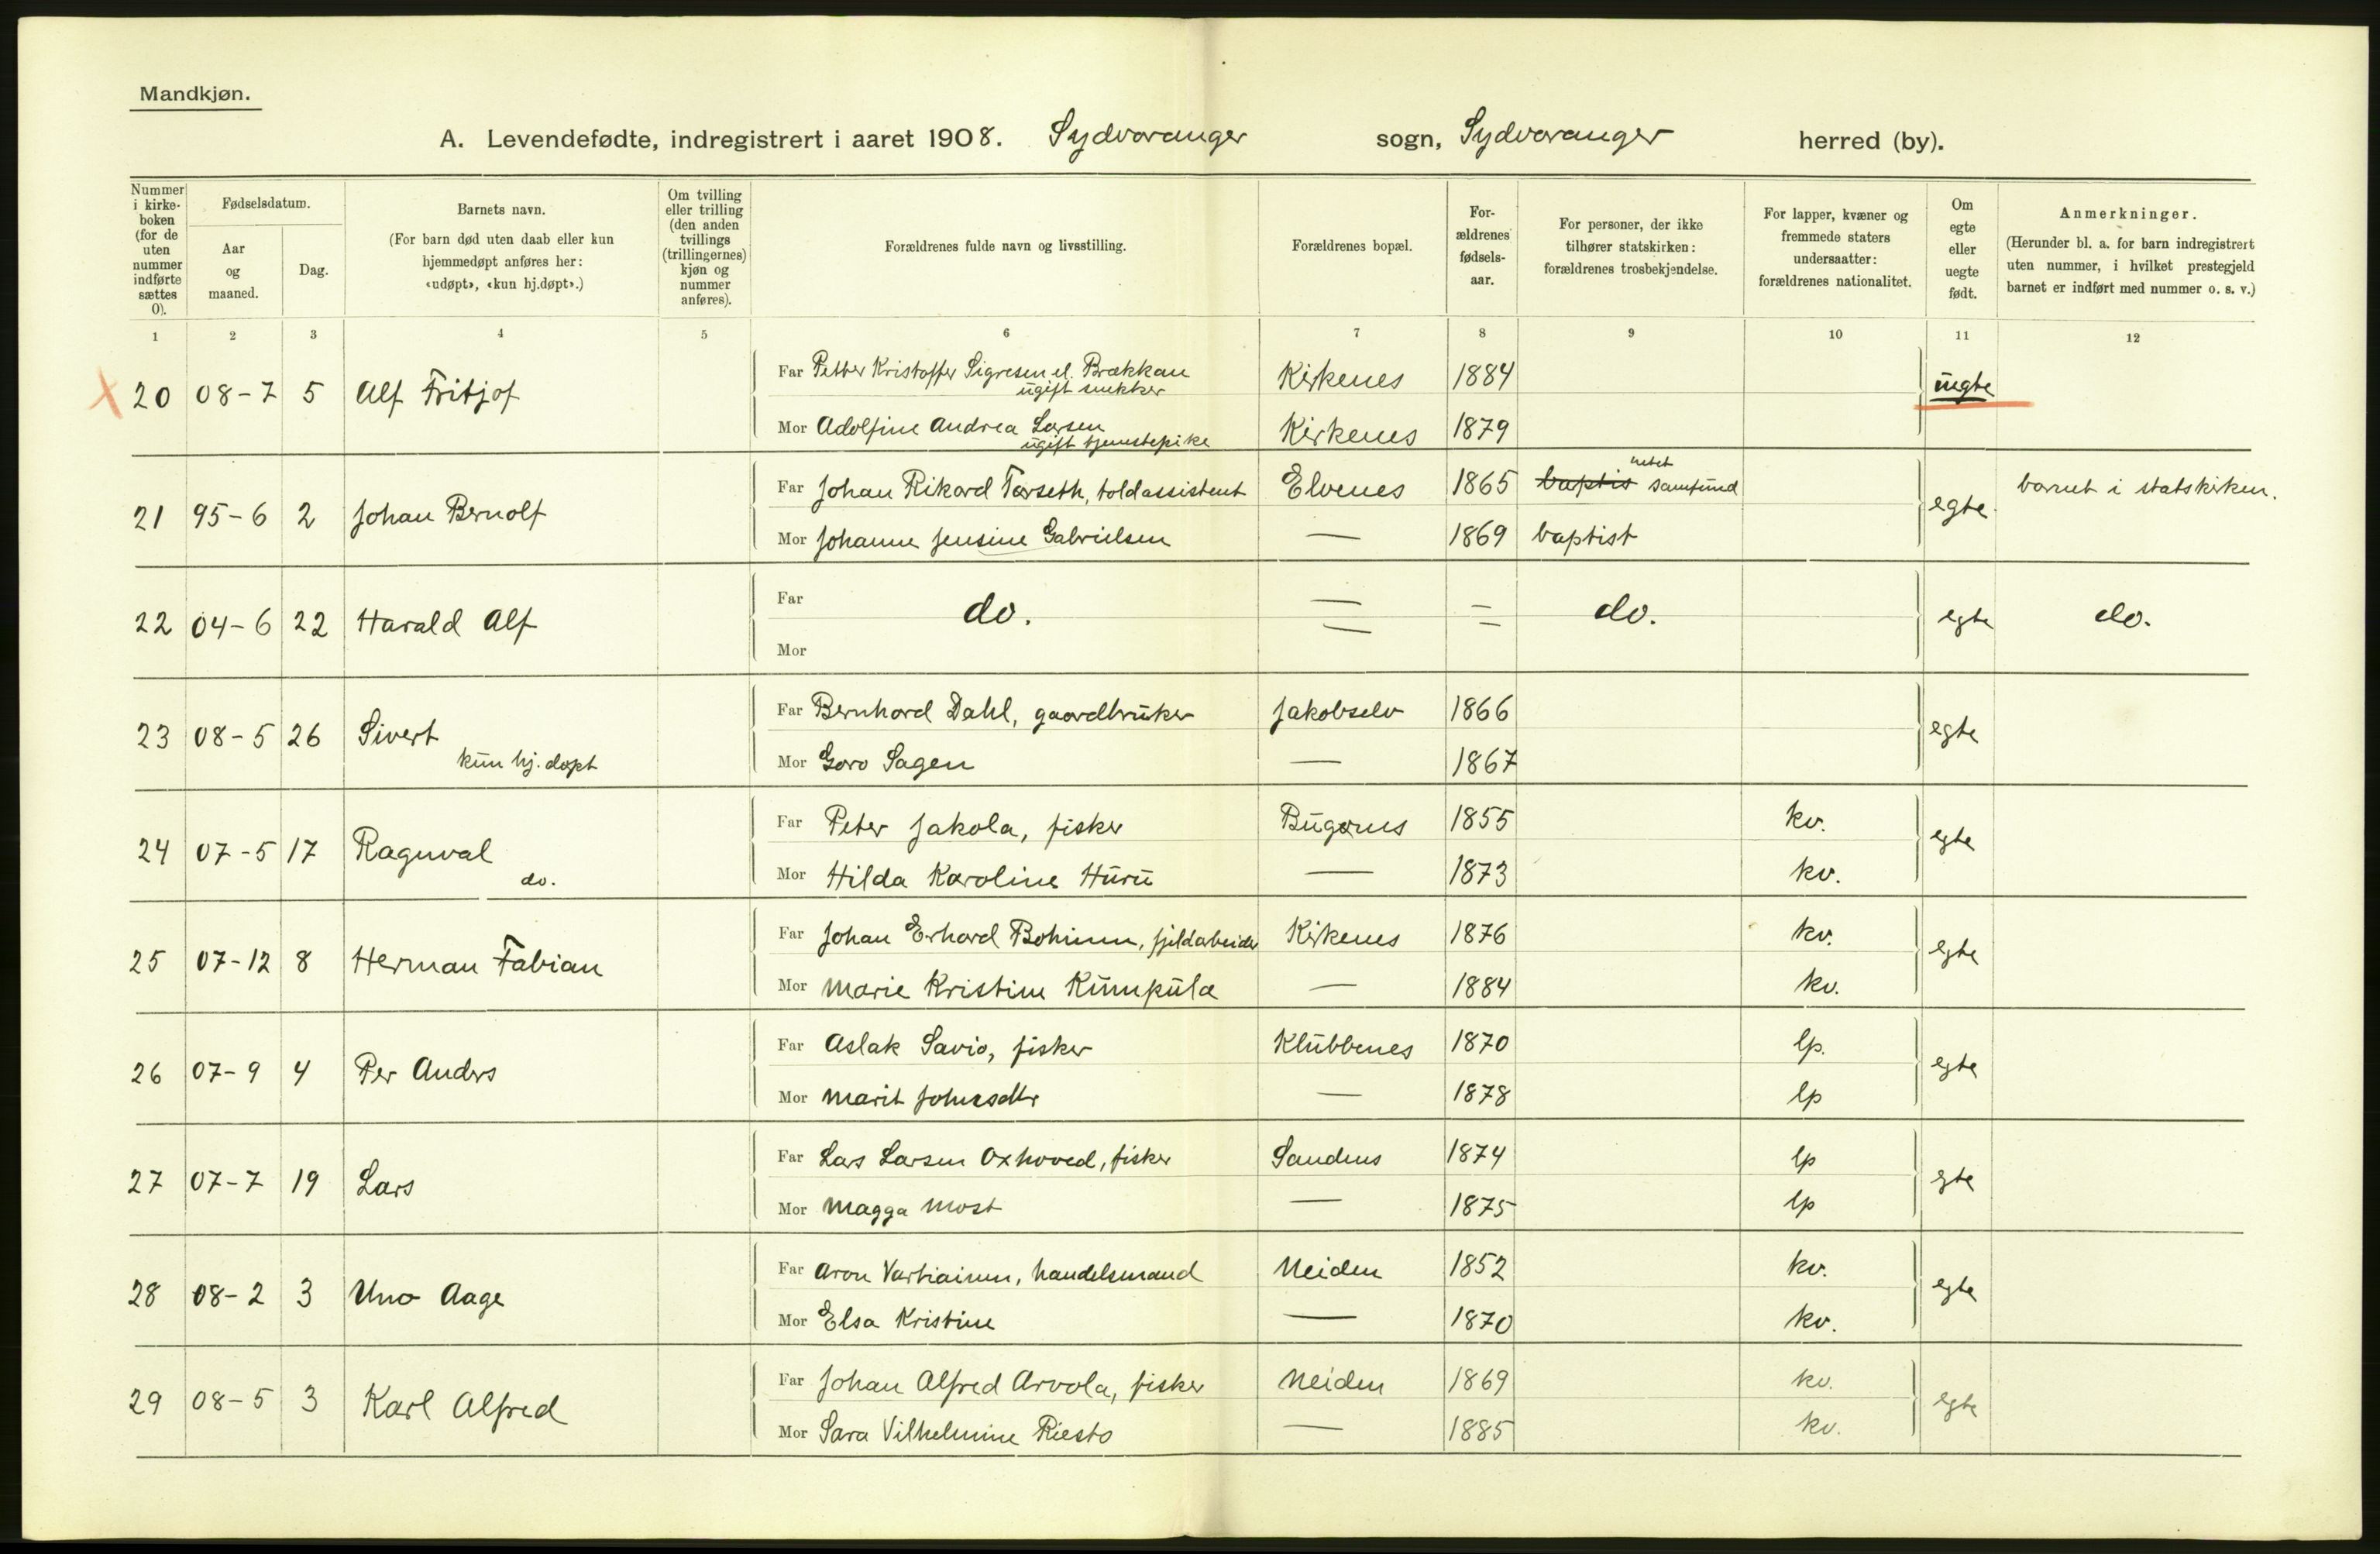 Mandkjøn.
A. Levendefødte, indregistrert i aaret 1908. Sydvaranger sogn, Sydvaranger herred (by).
Nummer i kirke-boken (for de uten nummer indførte sættes 0).
Fødselsdatum.
Aar og maaned.
Dag.
Barnets navn.
(For barn død uten daab eller kun hjemmedøpt anføres her: «udøpt», «kun hj.døpt».)
Om tvilling eller trilling (den anden tvillings (trillingernes) kjøn og nummer anføres).
Forældrenes fulde navn og livsstilling.
Forældrenes bopæl.
For-ældrenes fødsels-aar.
For personer, der ikke tilhører statskirken: forældrenes trosbekjendelse.
For lapper, kvæner og fremmede staters undersaatter: forældrenes nationalitet.
Om egte eller uegte født.
Anmerkninger.
(Herunder bl. a. for barn indregistrert uten nummer, i hvilket prestegjeld barnet er indført med nummer o. s. v.)
1 2 3 4 5 6 7 8 9 10 11 12
X 20 08-7 5 Alf Fritjof Far Petter Kristoffer Sigresen el. Brækkan Kirkenes 1884 uegte
ugift snekker
Mor Adolfine Andrea Larsen Kirkenes 1879
ugift tjenestepike
21 95-6 2 Johan Bernolf Far Johan Rikard Torseth, toldassistent Elvenes 1865 baptis samfund egte barnet i statskirken.
Mor Johanne Jensine Gabrielsen — 1869 baptist
22 04-6 22 Harald Alf Far do. — = do. egte do.
Mor —
23 08-5 26 Sivert Far Bernhard Dahl, gaardbruker Jakobselv 1866 egte
kun hj. døpt Mor Goro Sagen — 1867
24 07-5 17 Ragnval Far Peter Jakola, fisker Bugønes 1855 kv. egte
do. Mor Hilda Karoline Huru — 1873 kv.
25 07-12 8 Herman Fabian Far Johan Erhard Bohinen, fjeldarbeider Kirkenes 1876 kv. egte
Mor Marie Kristine Kumpula — 1884 kv.
26 07-9 4 Per Anders Far Aslak Savio, fisker Klubbenes 1870 lp. egte
Mor Marit Johnsdtr — 1878 lp
27 07-7 19 Lars Far Lars Larsen Oxhoved, fisker Sandnes 1874 lp egte
Mor Magga Most — 1875 lp
28 08-2 3 Uno Aage Far Aron Vartiainen, handelsmand Neiden 1852 kv. egte
Mor Elsa Kristine — 1870 kv.
29 08-5 3 Karl Alfred Far Johan Alfred Arvola, fisker Neiden 1869 kv. egte
Mor Sara Vilhelmine Riesto — 1885 kv.